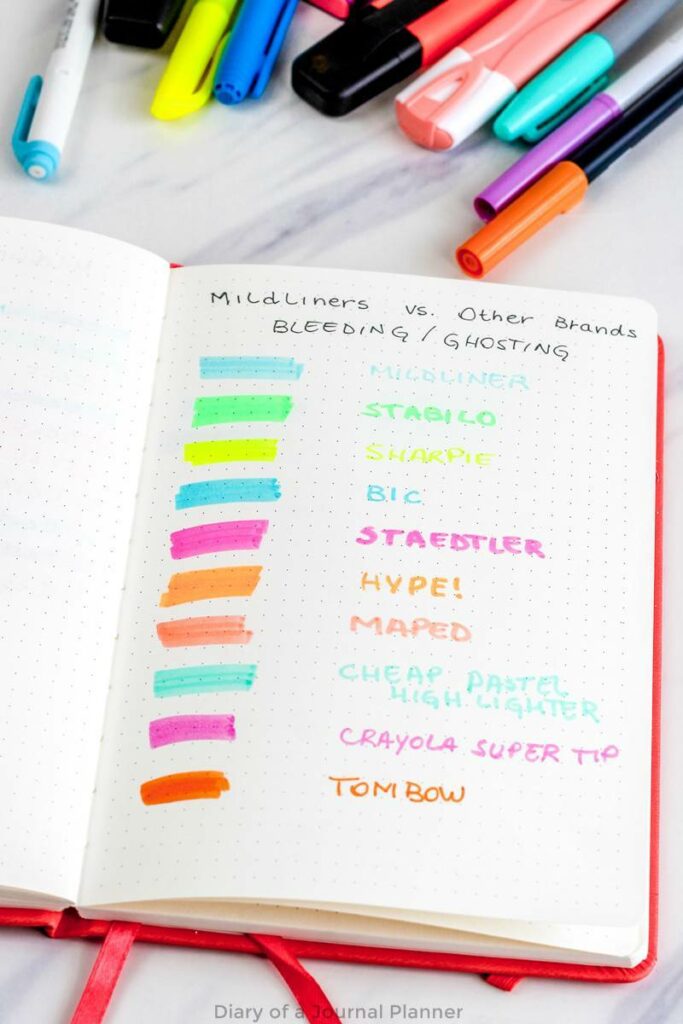 MILdLiNERS vs. Other Brands
BLEEDING / GHOSTING
MILDLINER
STABILO
SHARPIE
BIC
STAEDTLER
HYPE!
MAPED
CHEAP PASTEL
HIGHLIGHTER
CRAYOLA SUPER TIP
TOMBOW
Diary of a Journal Planner